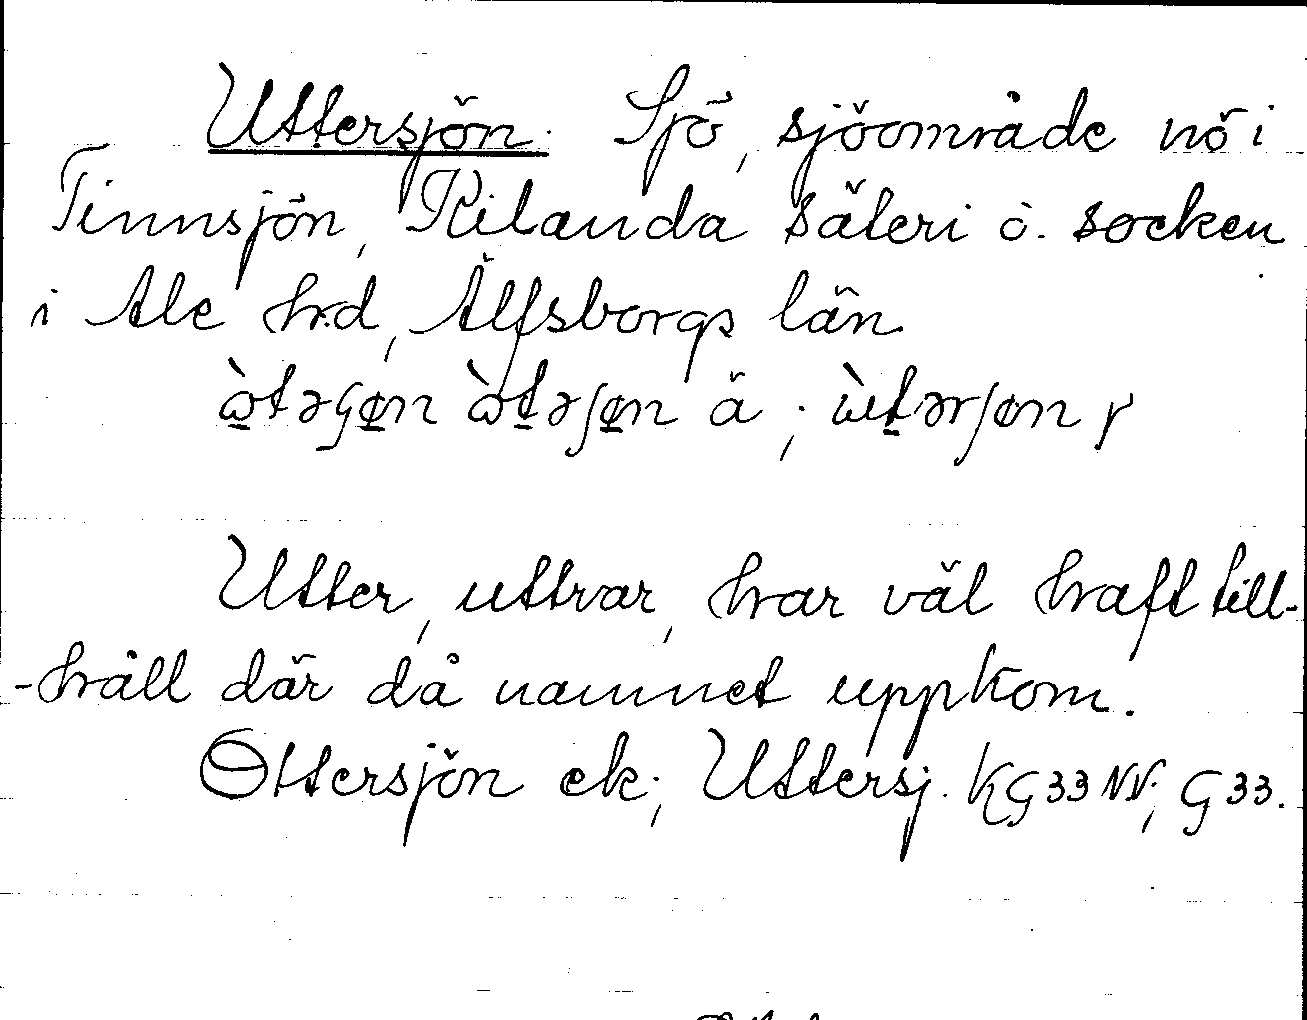 Uttersjön. Sjö, sjöområde nö i
Tinnsjön, Kilanda säteri o. socken
i Ale hrd, Älfsborgs län.
ä ; y
Utter, uttrar, hvar väl haft till-
-håll där då namnet uppkom.
Ottersjön ek; Uttersj. KG33NV; G33.